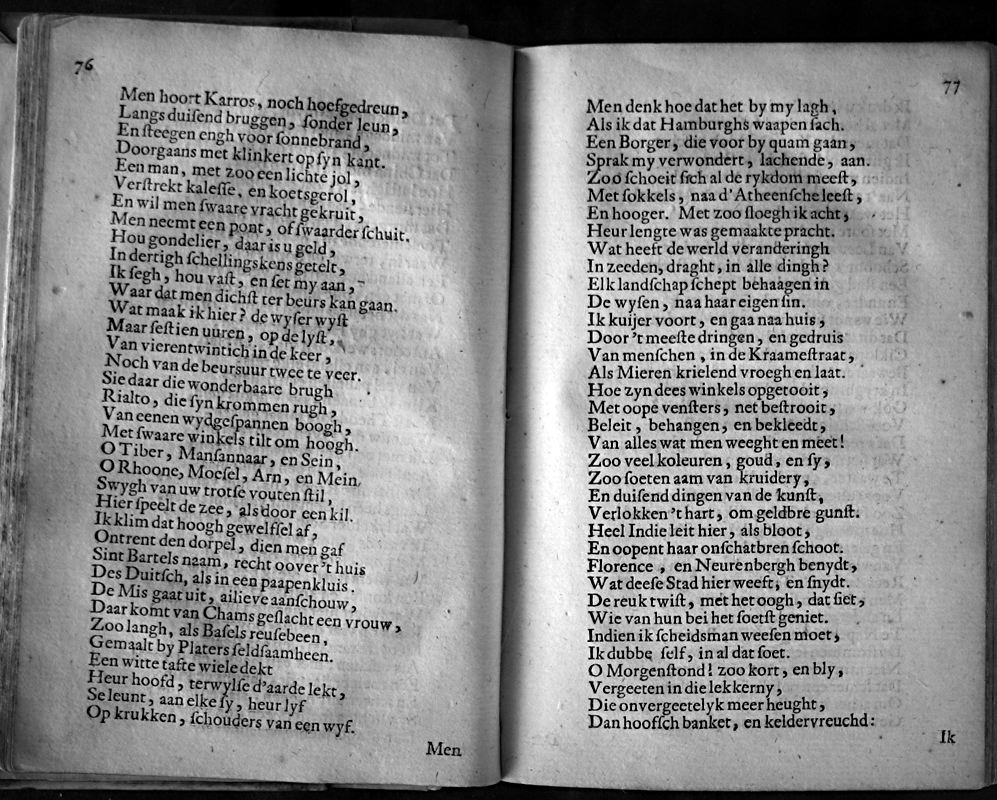 76
Men hoort Karros, noch hoefgedreun,
Langs duiſend bruggen, ſonder leun,
En ſteegen engh voor ſonnebrand,
Doorgaans met klinkert op ſyn kant.
Een man, met zoo een lichte jol,
Verſtrekt kaleſſe, en koetsgerol,
En wil men ſwaare vracht gekruit,
Men neemt een pont, of ſwaarder ſchuit.
Hou gondelier, daar is u geld,
In dertigh ſchellingskens getelt,
Ik ſegh, hou vaſt, en ſet my aan,
Waar dat men dichſt ter beurs kan gaan.
Wat maak ik hier? de wyſer wyſt
Maar ſeſtien uuren, op de lyſt,
Van vierentwintich in de keer,
Noch van de beursuur twee te veer.
Sie daar die wonderbaare brugh
Rialto, die ſyn krommen rugh,
Van eenen wydgeſpannen boogh,
Met ſwaare winkels tilt om hoogh.
O Tiber, Manſannaar, en Sein,
O Rhoone, Moeſel, Arn, en Mein,
Swygh van uw trotſe vouten ſtil,
Hier ſpeelt de zee, als door een kil.
Ik klim dat hoogh gewelfſel af,
Ontrent den dorpel, dien men gaf
Sint Bartels naam, recht oover 't huis
Des Duitſch, als in een paapenkluis.
De Mis gaat uit, ailieve aanſchouw,
Daar komt van Chams geſlacht een vrouw,
Zoo langh, als Baſels reuſebeen,
Gemaalt by Platers ſeldſaamheen.
Een witte tafte wiele dekt
Heur hoofd, terwylſe d'aarde lekt,
Se leunt, aan elke ſy, heur lyf
Op krukken, ſchouders van een wyf.
Men
77
Men denk hoe dat het by my lagh,
Als ik dat Hamburghs waapen ſach.
Een Borger, die voor by quam gaan,
Sprak my verwondert, lachende, aan.
Zoo ſchoeit ſich al de rykdom meeſt,
Met ſokkels, naa d'Atheenſche leeſt,
En hooger. Met zoo ſloegh ik acht,
Heur lengte was gemaakte pracht.
Wat heeft de werld veranderingh
In zeeden, draght, in alle dingh?
Elk landſchap ſchept behaagen in
De wyſen, naa haar eigen ſin.
Ik kuijer voort, en gaa naa huis,
Door 't meeſte dringen, en gedruis
Van menſchen, in de Kraameſtraat,
Als Mieren krielend vroegh en laat.
Hoe zyn dees winkels opgetooit,
Met oope venſters, net beſtrooit,
Beleit, behangen, en bekleedt,
Van alles wat men weeght en meet!
Zoo veel koleuren, goud, en ſy,
Zoo ſoeten aam van kruidery,
En duiſend dingen van de kunſt,
Verlokken 't hart, om geldbre gunſt.
Heel Indie leit hier, als bloot,
En oopent haar onſchatbren ſchoot.
Florence, en Neurenbergh benydt,
Wat deeſe Stad hier weeft, en ſnydt.
De reuk twiſt, met het oogh, dat ſiet,
Wie van hun bei het ſoetſt geniet.
Indien ik ſcheidsman weeſen moet,
Ik dubbe ſelf, in al dat ſoet.
O Morgenſtond! zoo kort, en bly,
Vergeeten in die lekkerny,
Die onvergeetelyk meer heught,
Dan hoofſch banket, en keldervreuchd:
Ik